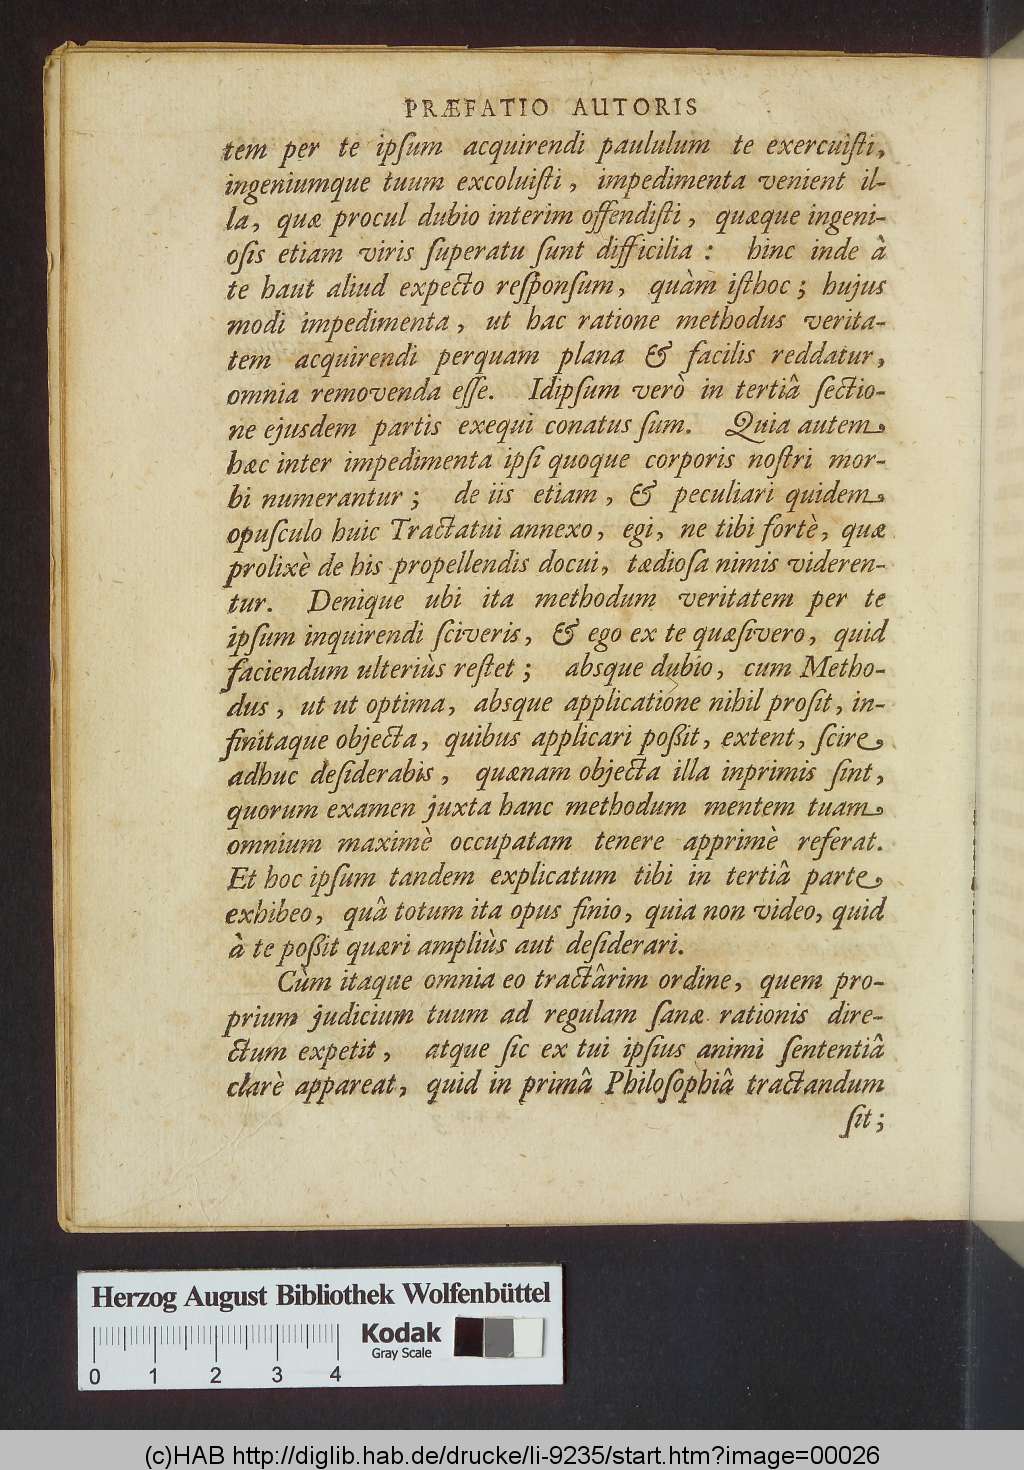 PRÆFATIO AUTORIS
tem per te ipſum acquirendi paululum te exercuiſti,
ingeniumque tuum excoluiſti, impedimenta venient il-
la, quæ procul dubio interim offendiſti, quæque ingeni-
oſis etiam viris ſuperatu ſunt difficilia: hinc inde à
te haut aliud expecto reſponſum, quàm iſthoc; hujus
modi impedimenta, ut hac ratione methodus verita-
tem acquirendi perquam plana & facilis reddatur,
omnia removenda eſſe. Idipſum verò in tertiâ ſectio-
ne ejusdem partis exequi conatus ſum. Quia autem
hæc inter impedimenta ipſi quoque corporis noſtri mor-
bi numerantur; de iis etiam, & peculiari quidem
opuſculo huic Tractatui annexo, egi, ne tibi fortè, quæ
prolixè de his propellendis docui, tædioſa nimis videren-
tur. Denique ubi ita methodum veritatem per te
ipſum inquirendi ſciveris, & ego ex te quæſivero, quid
faciendum ulteriùs reſtet; absque dubio, cum Metho-
dus, ut ut optima, absque applicatione nihil proſit, in-
finitaque objecta, quibus applicari poßit, extent, ſcire
adhuc deſiderabis, quænam objecta illa inprimis ſint,
quorum examen juxta hanc methodum mentem tuam
omnium maximè occupatam tenere apprimè referat.
Et hoc ipſum tandem explicatum tibi in tertiâ parte
exhibeo, quâ totum ita opus finio, quia non video, quid
à te poßit quæri ampliùs aut deſiderari.
Cùm itaque omnia eo tractârim ordine, quem pro-
prium judicium tuum ad regulam ſanæ rationis dire-
ctum expetit, atque ſic ex tui ipſius animi ſententiâ
clarè appareat, quid in primâ Philoſophiâ tractandum
ſit;
Herzog August Bibliothek Wolfenbüttel
Kodak
Gray Scale
0 1 2 3 4
(c)HAB http://diglib.hab.de/drucke/li-9235/start.htm?image=00026